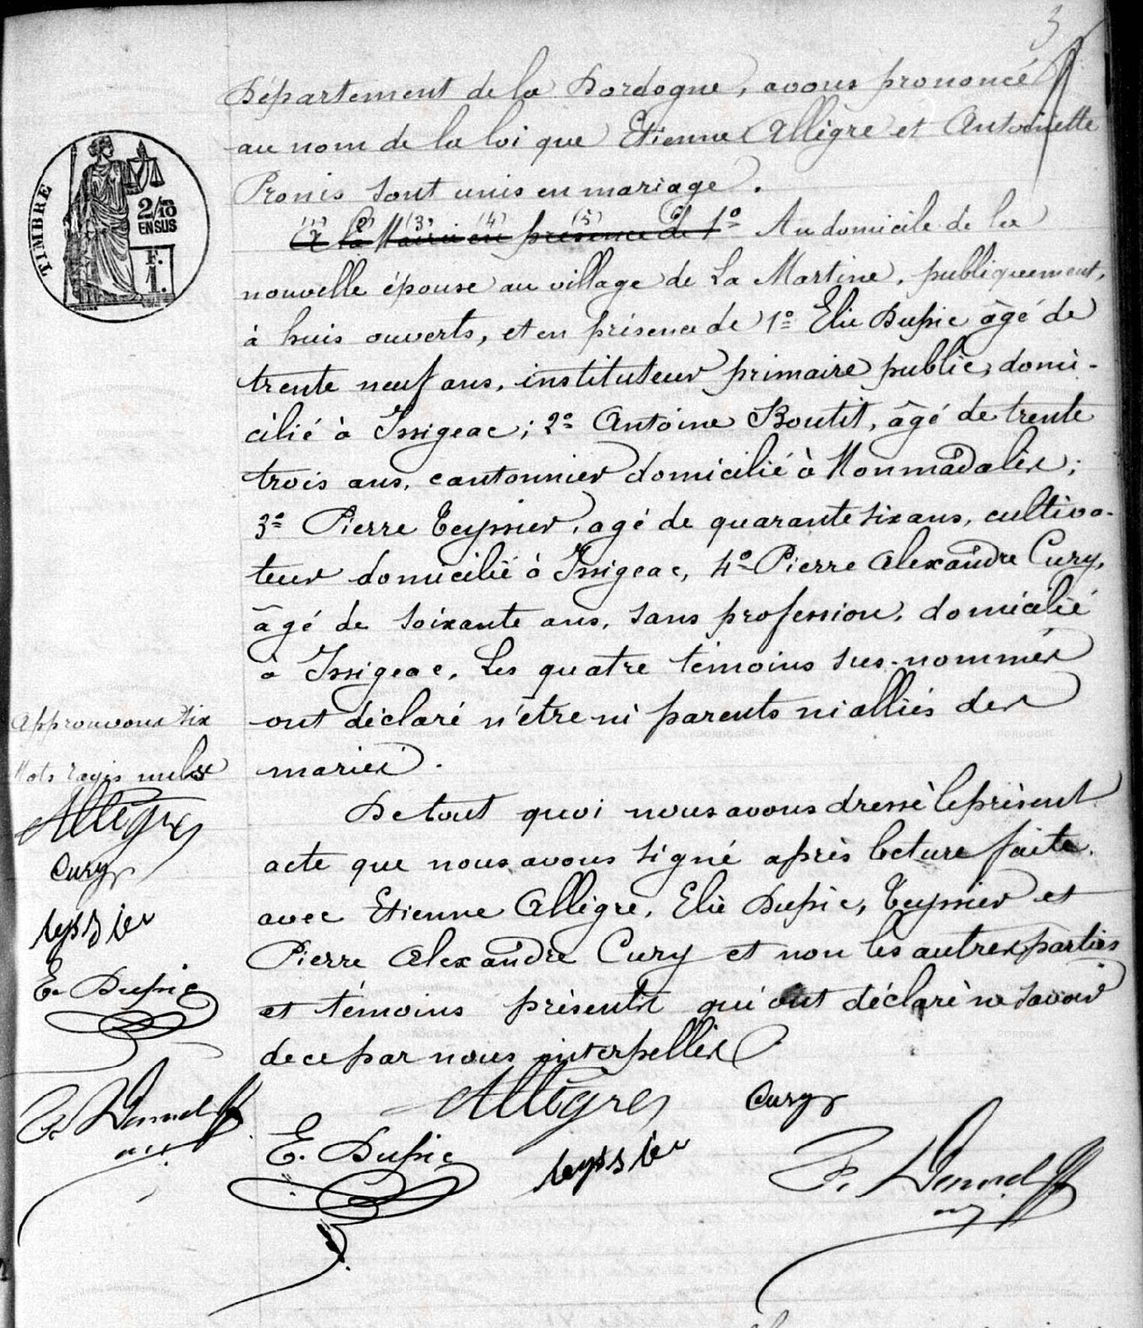 3
Département de la Dordogne, avons prononcé
au nom de la loi que Etienne Allègre et Antoinette
Pronis sont unis en mariage.
(1) (2) (3) (4) (5) (6)
A la Mairie en présence de 1º Au domicile de la
nouvelle épouse au village de La Martine, publiquement,
à huis ouverts, et en présence de 1º Elie Dupic âgé de
trente neuf ans, instituteur primaire public, domi-
cilié à Issigeac; 2º Antoine Boutit, âgé de trente
trois ans, cantonnier domicilié à Monmadalès;
3º Pierre Teyssier, agé de quarante six ans, cultiva-
teur domicilié à Issigeac, 4º Pierre Alexandre Cury,
âgé de soixante ans, sans profession, domicilié
à Issigeac, Les quatre témoins sus-nommés
ont déclaré n'être ni parents ni alliés des
mariés.
De tout quoi nous avons dressé le présent
acte que nous avons signé après lecture faite.
avec Etienne Allègre, Elie Dupic, Teyssier et
Pierre Alexandre Cury et non les autres parties
et témoins présents qui ont déclaré ne savoir
de ce par nous interpellés
Allègre Cury
E. Dupic teyssier
TIMBRE
2/10
EN SUS
F.
1.
Approuvons six
Mots rayés nuls
Allègre
Cury
teyssier
E. Dupic